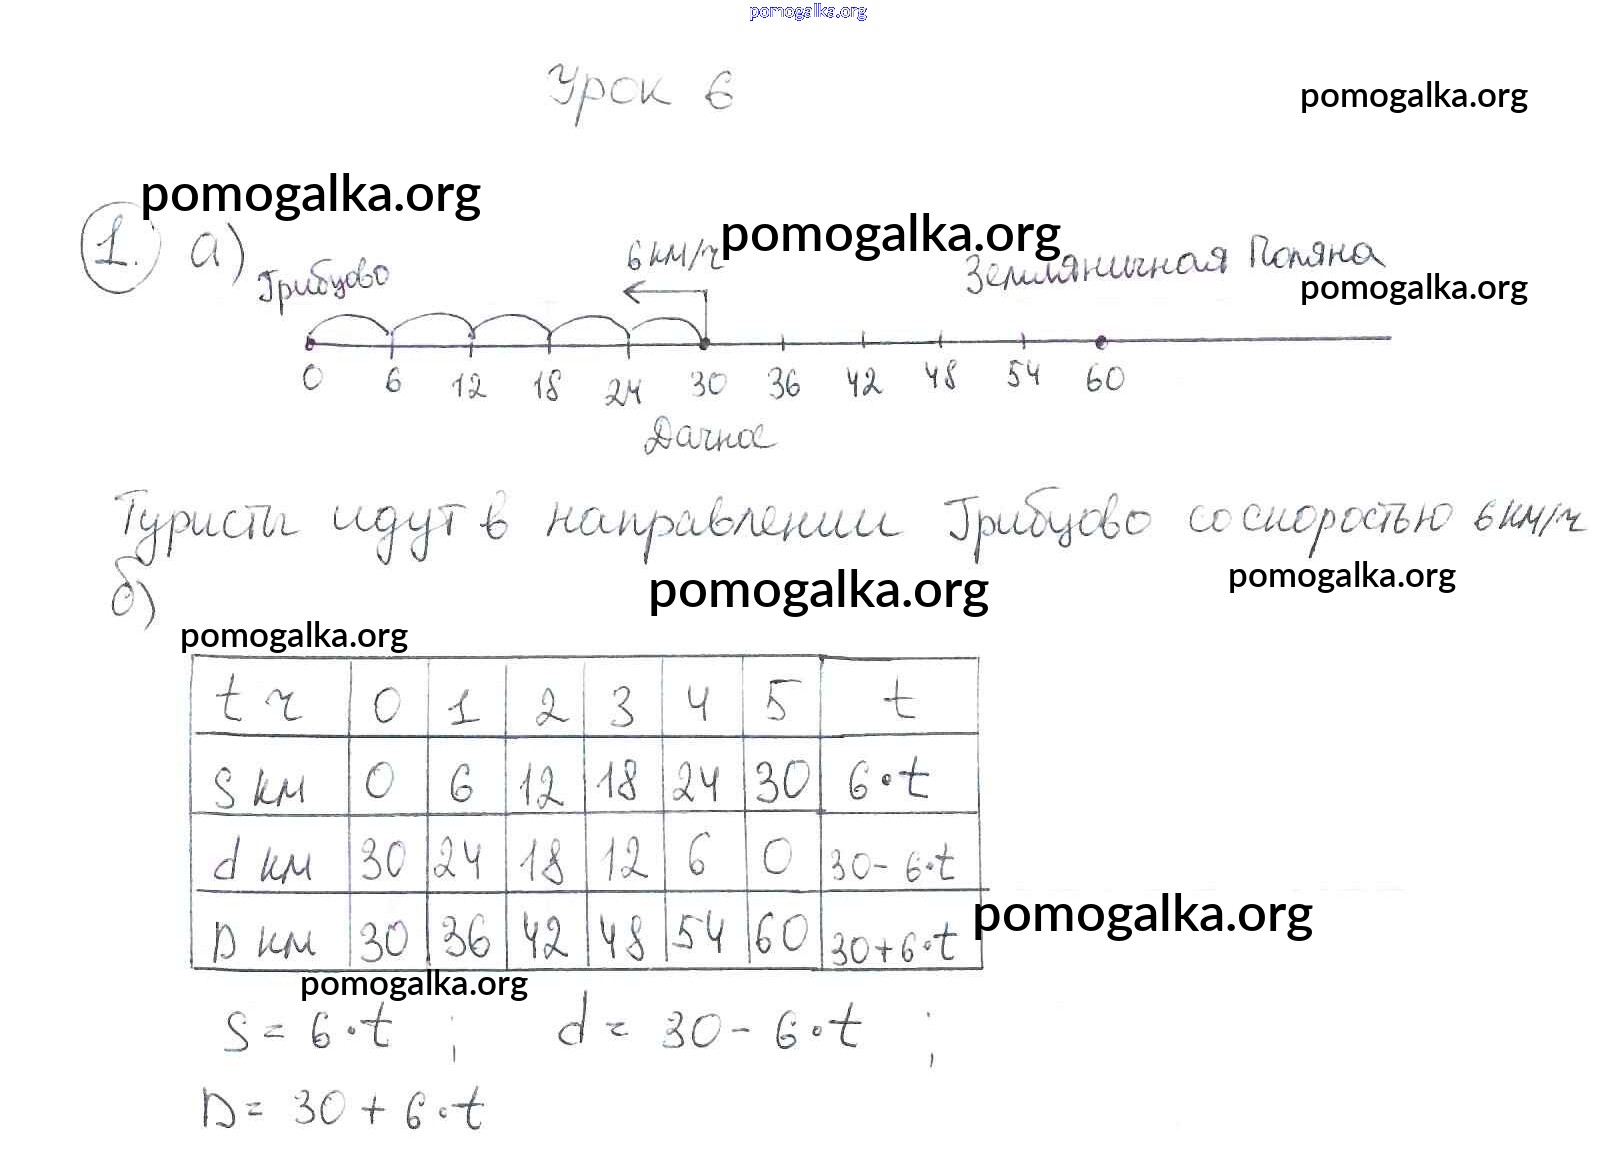 pomogalka.org
Урок 6
pomogalka.org
pomogalka.org
1. а)
pomogalka.org
Грибцово
6 км/ч
Земляничная Поляна
pomogalka.org
0 6 12 18 24 30 36 42 48 54 60
Дачное
Туристы идут в направлении Грибцово со скоростью 6 км/ч
б)
pomogalka.org
pomogalka.org
pomogalka.org
t ч 0 1 2 3 4 5 t
S км 0 6 12 18 24 30 6·t
d км 30 24 18 12 6 0 30-6·t
D км 30 36 42 48 54 60 30+6·t
pomogalka.org
pomogalka.org
S = 6·t ; d = 30 - 6·t ;
D = 30 + 6·t